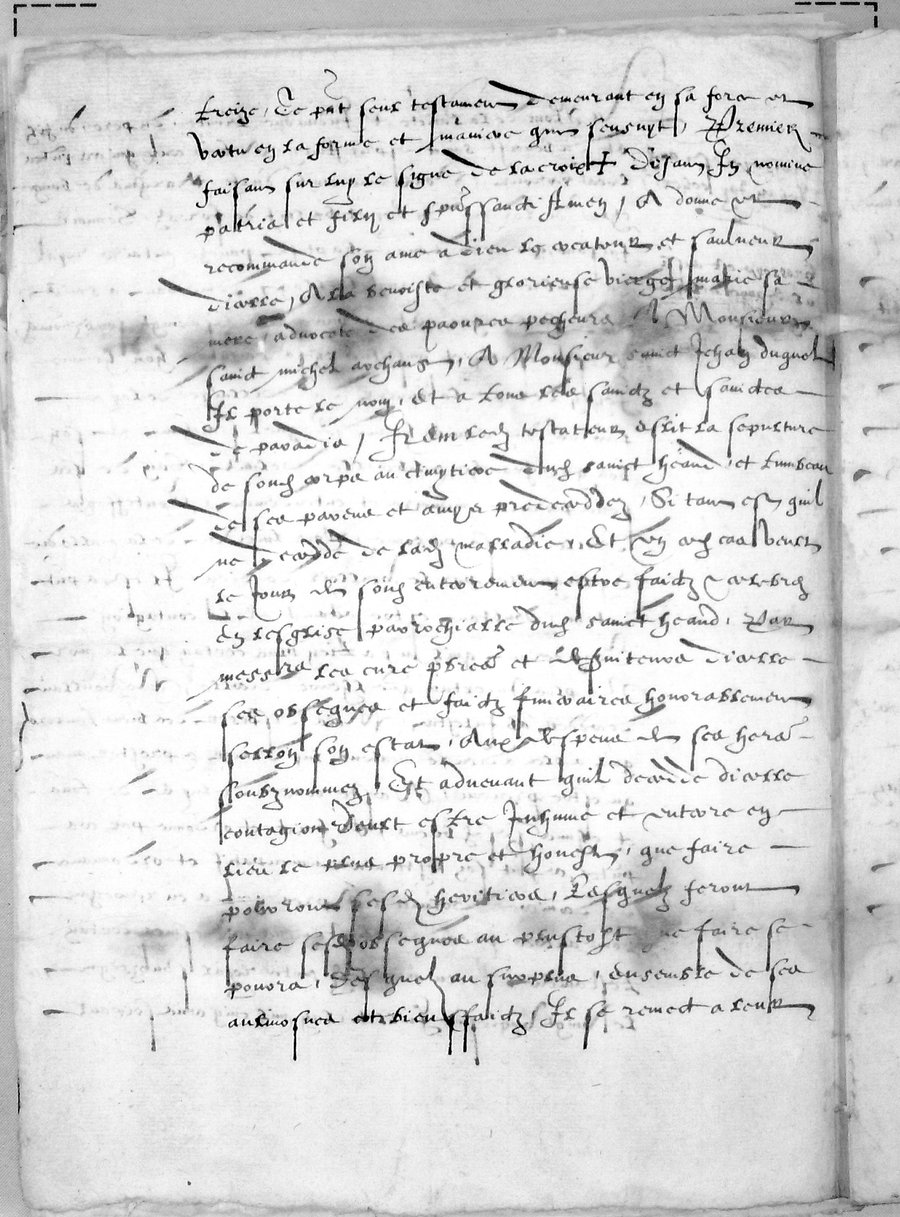 treize, Le pnt seul testament demeurant en sa force et
vertu en la forme et maniere que sensuyt, Premier
faisant sur luy le signe de la croix + disant In nomine
patris et filii et spus sancti Amen, A donne et
recommande son ame a dieu le createur et saulveur
dicelle, A la benoiste et glorieuse vierge marie sa
mere advocate des paouvres pecheurs A Monsieur
sainct michel archange, A Monsieur sainct Jehan duquel
Il porte le nom, Et a tous les sainctz et sainctes
de paradis, Item led testateur eslit la sepulture
de sond corps au cimytiere dud sainct heand, et tumbeau
de ses parens et amys predeceddez, Si tant est quil
ne decedde de lad malladie, Et en ce cas veult
le Jour de sond enterrement estre faictz celebrez
En lesglise parrochialle dud sainct heand, Par
messrs les cure pbres et
ses obseques et faictz funeraires honorablement
sellon son estat, Aux despens de ses hers
soubznommez, Et advenant quil decedde dicelle
contagion veult estre Inhume et enterre en
lieu le plus propre et honeste, que faire
pourront sesd heritiers, Lesquelz feront
faire sesd obseques au plustost que faire se
pourra, Desquelz au surplus, ensemble de ses
aulmosnes et bienffaictz, Il se remect a leur